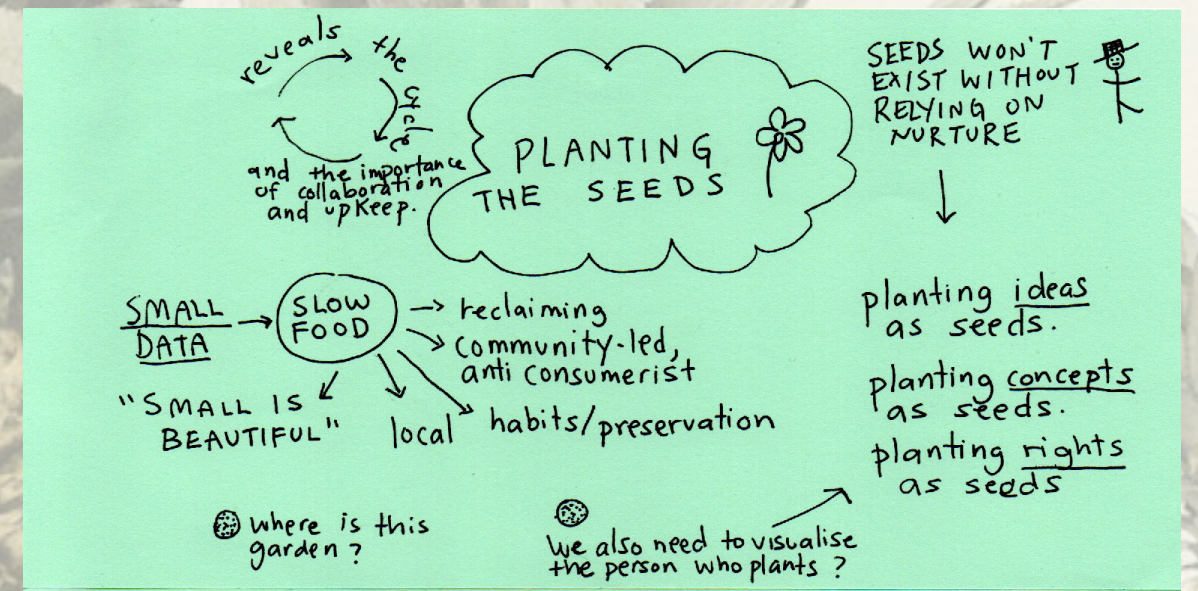 reveals the cycle
and the importance
of collaboration
and upkeep.
PLANTING
THE SEEDS
SEEDS WON'T
EXIST WITHOUT
RELYING ON
NURTURE
SMALL
DATA
SLOW
FOOD
reclaiming
community-led,
anti consumerist
habits/preservation
local
"SMALL IS
BEAUTIFUL"
planting ideas
as seeds.
planting concepts
as seeds.
planting rights
as seeds
where is this
garden?
we also need to visualise
the person who plants?